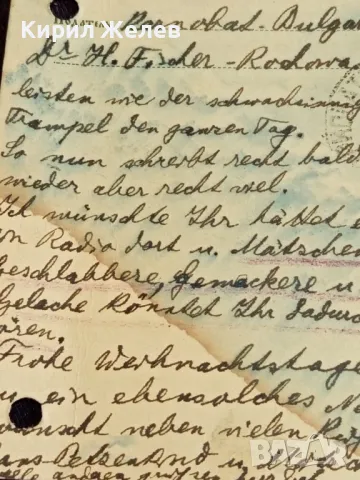 © Кирил Желев
Karnobat. Bulgar
Dr. H. Fischer-Rochowa
leisten wie der schwachsinnig
Trampel den ganzen Tag.
So nun schreibt recht bald
wieder aber recht viel.
Ich wünschte Ihr hättet e
ein Radio dort u. Mätschen
Geschlabbere, Gemeckere u
Gelache könntet Ihr dadurc
hören.
Frohe Weihnachtstage
u ein ebensolches N
wünscht neben vielen
Bazar